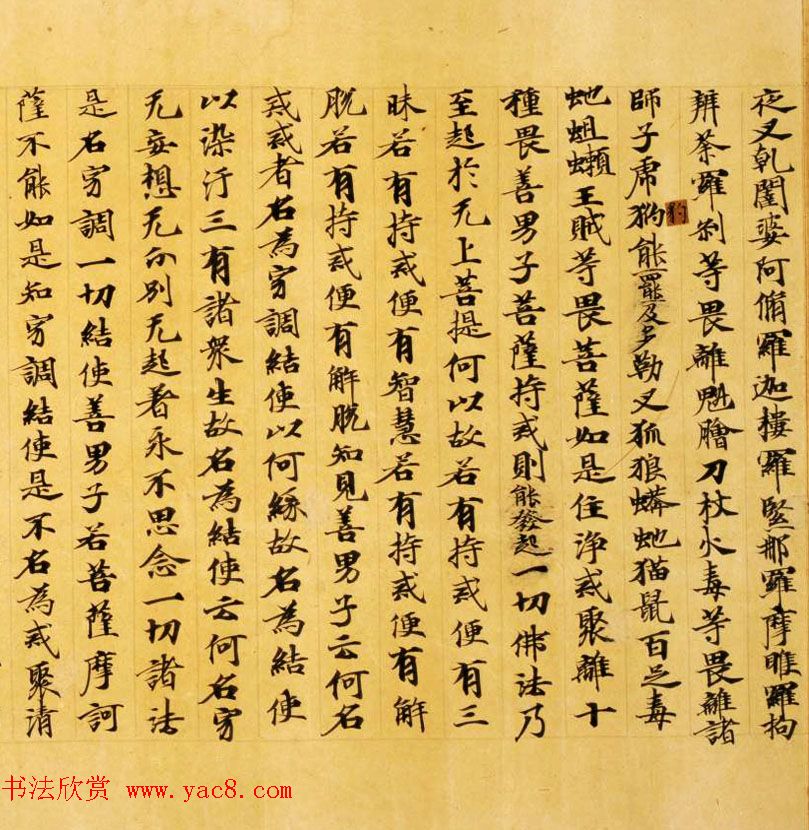 夜叉乹闥婆阿脩羅迦樓羅緊那羅摩睺羅拘
辨荼羅刹等畏離魁膾刀杖火毒等畏離諸
師子虎豹熊羆及多勒叉狐狼蟒虵猫鼠百足毒
豹
虵蛆王賊等畏菩薩如是住淨戒聚離十
種畏善男子菩薩持戒則能發起一切佛法乃
至起於无上菩提何以故若有持戒便有三
昧若有持戒便有智慧若有持戒便有解
脱若有持戒便有解脱知見善男子云何名
戒戒者名為穷調結使以何緣故名為結使
以染汙三有諸衆生故名為結使云何名穷
无妄想无分別无起著永不思念一切諸法
是名穷調一切結使善男子若菩薩摩訶
薩不能如是知穷調結使是不名為戒聚清
书法欣赏 www.yac8.com